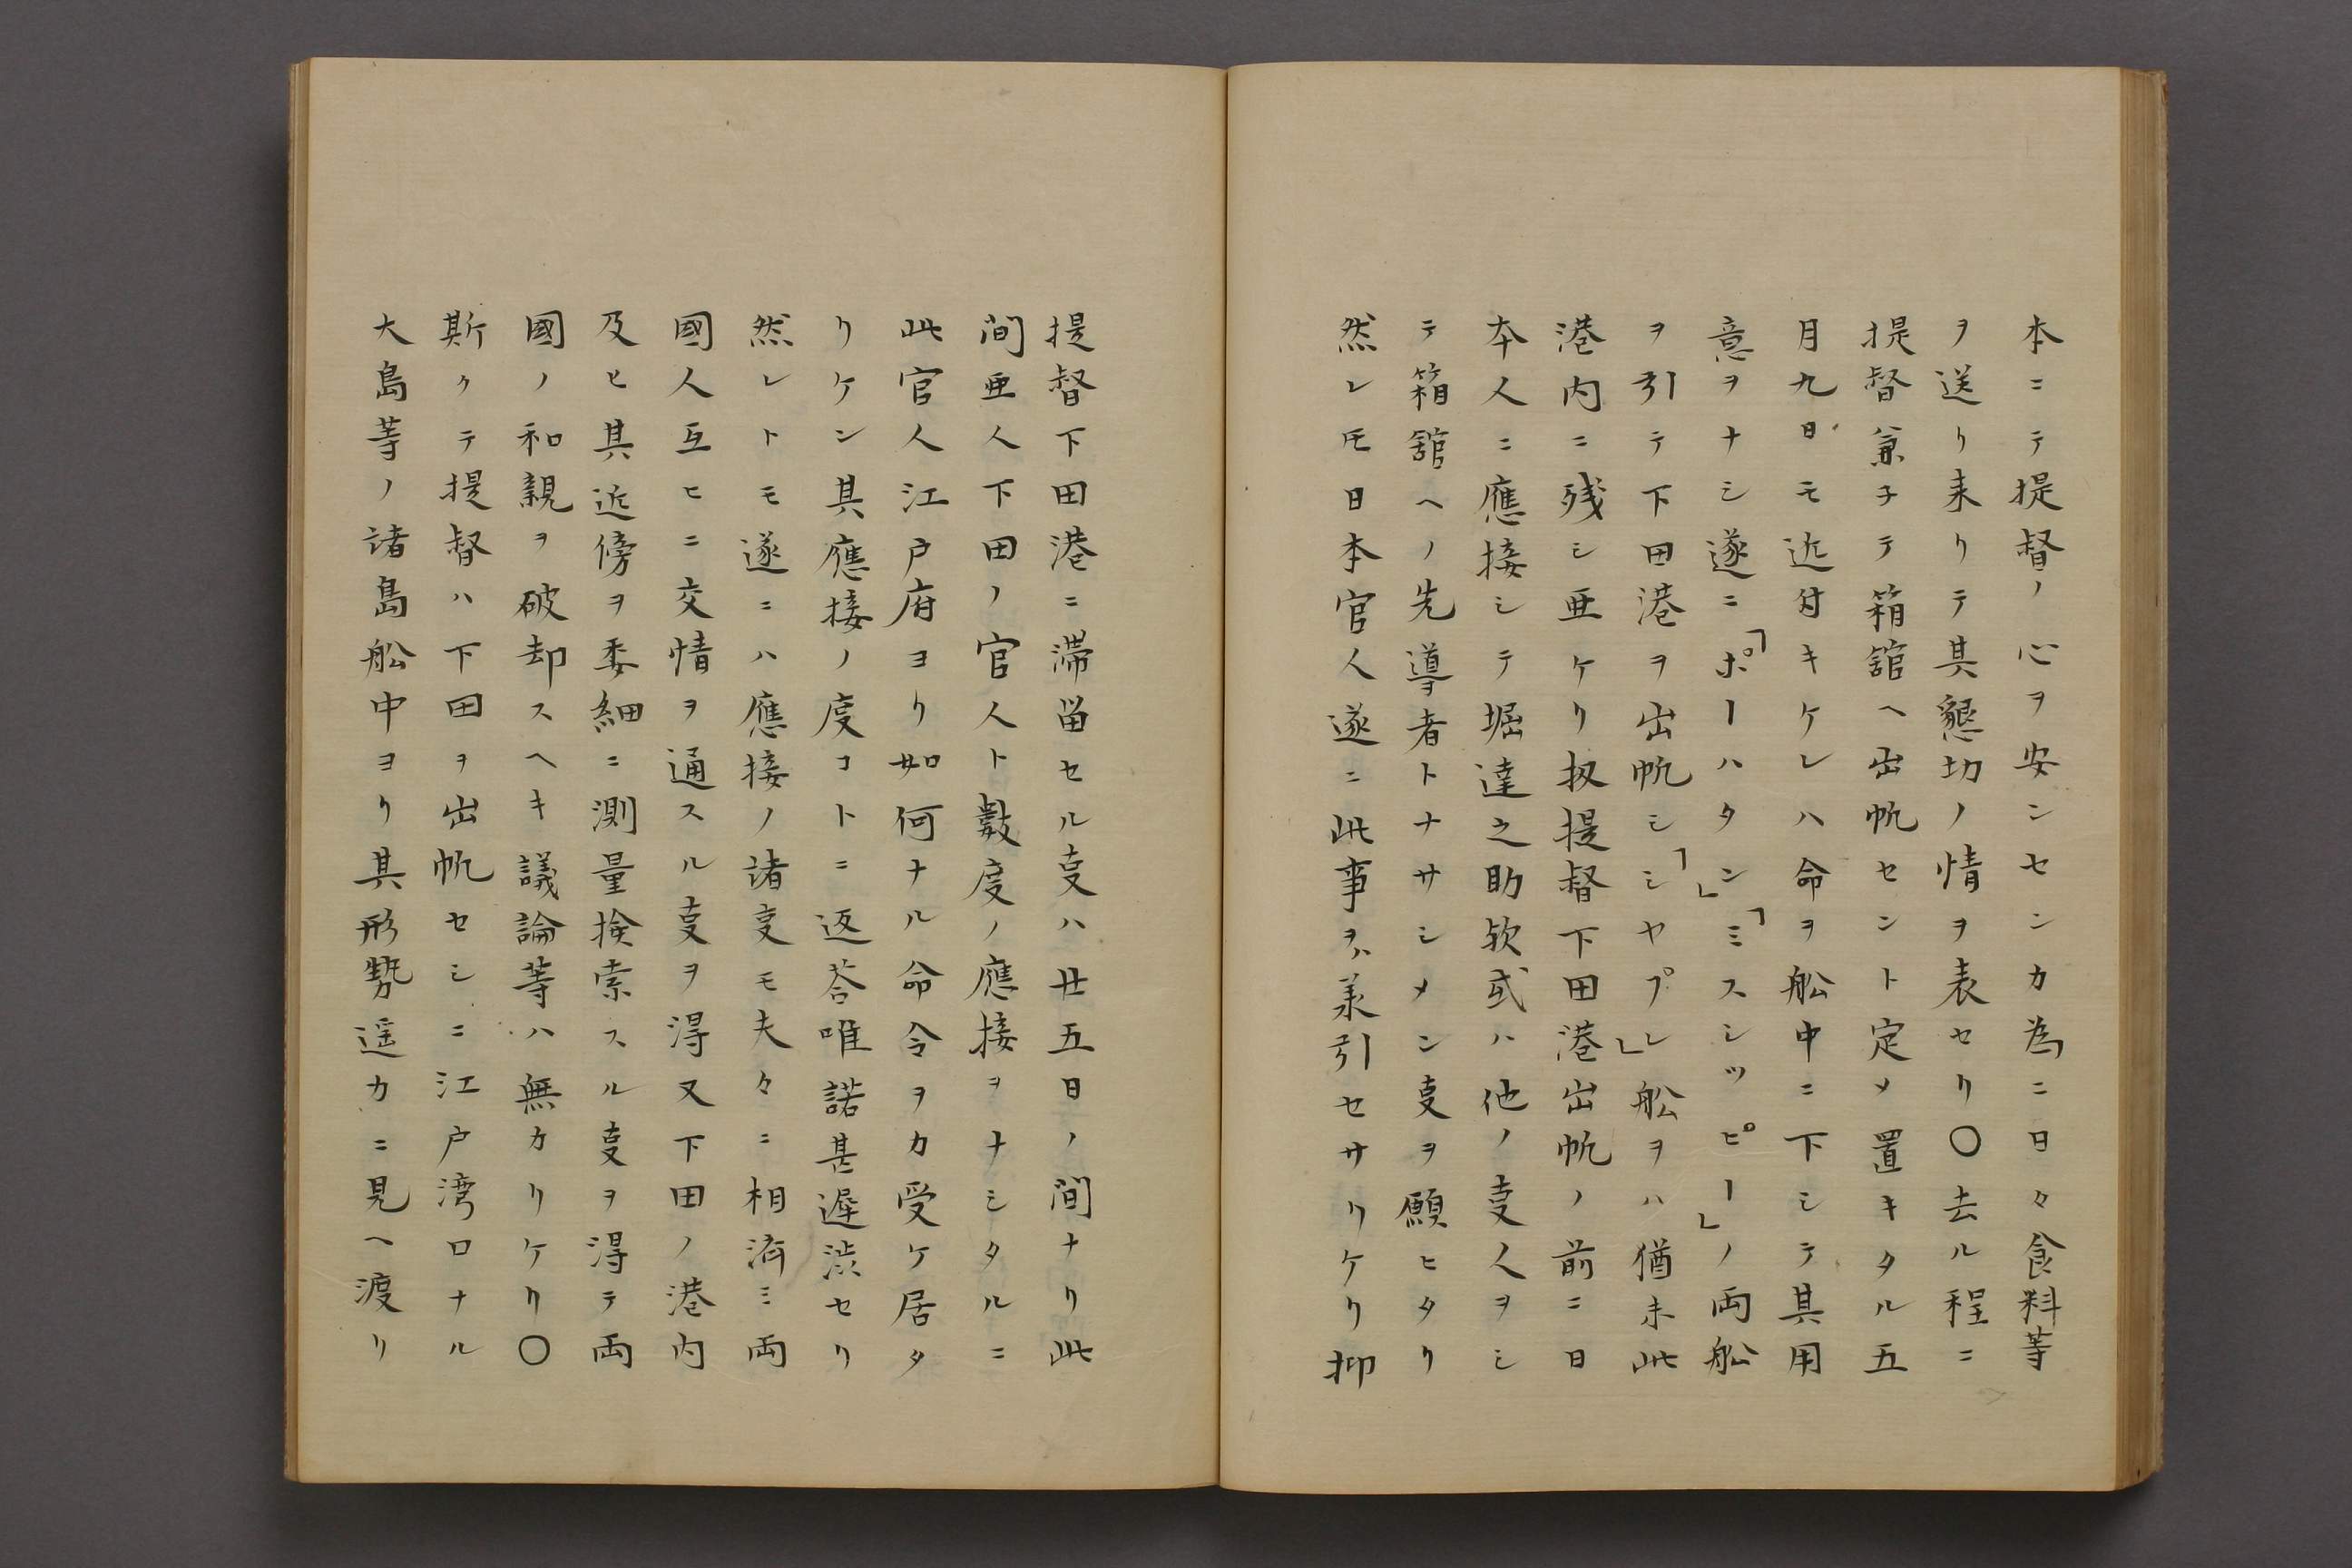 本ニテ提督ノ心ヲ安ンセンカ為ニ日々食料等
ヲ送リ来リテ其懇切ノ情ヲ表セリ〇去ル程ニ
提督兼子テ箱舘ヘ出帆セント定メ置キタル五
月九日モ近付キケレハ命ヲ舩中ニ下シテ其用
意ヲナシ遂ニ「ポーハタン」「ミスシツピー」ノ両舩
ヲ引テ下田港ヲ出帆シ「シヤプレ」舩ヲハ猶未此
港内ニ残シ亜ケリ扨提督下田港出帆ノ前ニ日
本人ニ應接シテ堀達之助欤或ハ他ノ㕝人ヲシ
テ箱舘ヘノ先導者トナサシメン㕝ヲ願ヒタリ
然レ𪜈日本官人遂ニ此事ヲハ兼引セサリケリ抑
提督下田港ニ滞畄セル㕝ハ廿五日ノ間ナリ此
間亜人下田ノ官人ト數度ノ應接ヲナシタルニ
此官人江戸府ヨリ如何ナル命令ヲカ受ケ居タ
リケン其應接ノ度コトニ返荅唯諾甚遲渋セリ
然レトモ遂ニハ應接ノ諸㕝モ夫々ニ相濟ミ両
國人互ヒニ交情ヲ通スル㕝ヲ淂又下田ノ港内
及ヒ其近傍ヲ委細ニ測量捡索スル㕝ヲ淂テ両
國ノ和親ヲ破却スヘキ議論等ハ無カリケリ〇
斯クテ提督ハ下田ヲ出帆セシニ江戸湾口ナル
大島等ノ諸島舩中ヨリ其形勢遥カニ見ヘ渡リ